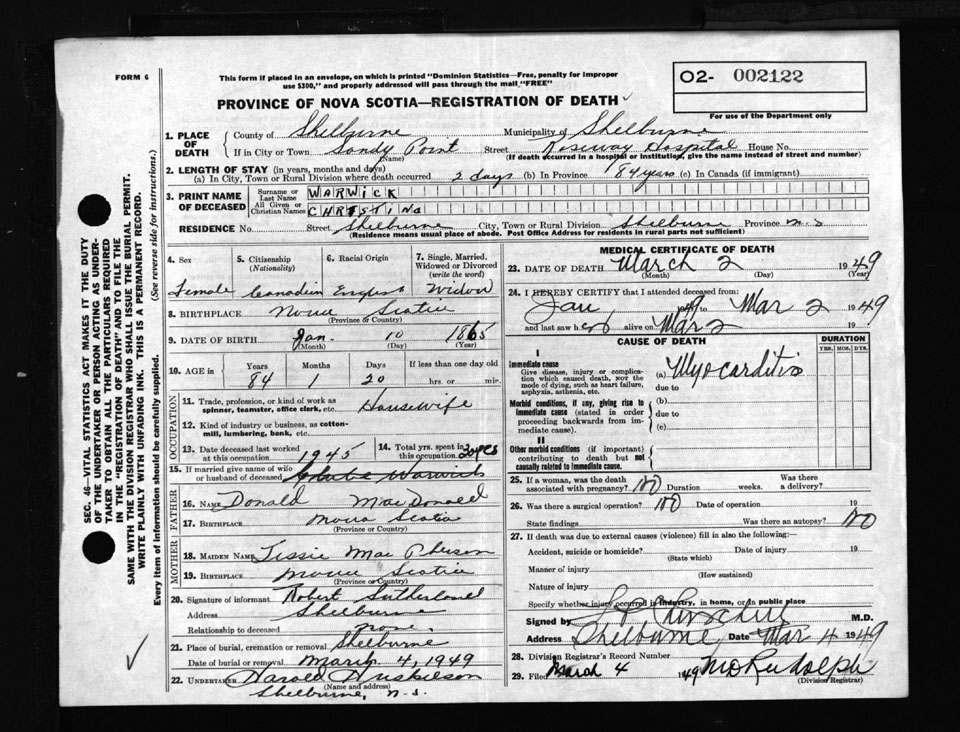 FORM 6
This form if placed in an envelope, on which is printed "Dominion Statistics—Free, penalty for improper use $300," and properly addressed will pass through the mail "FREE"
O2- 002122
For use of the Department only
PROVINCE OF NOVA SCOTIA—REGISTRATION OF DEATH
SEC. 46—VITAL STATISTICS ACT MAKES IT THE DUTY
OF THE UNDERTAKER OR PERSON ACTING AS UNDER-
TAKER TO OBTAIN ALL THE PARTICULARS REQUIRED
IN THE "REGISTRATION OF DEATH" AND TO FILE THE
SAME WITH THE DIVISION REGISTRAR WHO SHALL ISSUE THE BURIAL PERMIT.
WRITE PLAINLY WITH UNFADING INK. THIS IS A PERMANENT RECORD.
Every item of information should be carefully supplied. (See reverse side for instructions.)
1. PLACE OF DEATH
County of Shelburne Municipality of Shelburne
If in City or Town Sandy Point Street Roseway Hospital House No.
(Name) (If death occurred in a hospital or institution, give the name instead of street and number)
2. LENGTH OF STAY (in years, months and days)
(a) In City, Town or Rural Division where death occurred 2 days (b) In Province 84 years (c) In Canada (if immigrant)
3. PRINT NAME OF DECEASED
Surname or Last Name WARWICK
All Given or Christian Names CHRISTINA
RESIDENCE No. Street Shelburne City, Town or Rural Division Shelburne Province N.S
(Residence means usual place of abode. Post Office Address for residents in rural parts not sufficient)
4. Sex 5. Citizenship (Nationality) 6. Racial Origin 7. Single, Married, Widowed or Divorced (write the word)
Female Canadian English Widow
8. BIRTHPLACE Nova Scotia
(Province or Country)
9. DATE OF BIRTH Jan. 10 1865
(Month) (Day) (Year)
10. AGE in Years Months Days If less than one day old
84 1 20 hrs. or min.
OCCUPATION
11. Trade, profession, or kind of work as spinner, teamster, office clerk, etc. Housewife
12. Kind of industry or business, as cotton-mill, lumbering, bank, etc.
13. Date deceased last worked at this occupation 1945 14. Total yrs. spent in this occupation
15. If married give name of wife or husband of deceased Warwick
FATHER
16. Name Donald MacDonald
17. Birthplace Nova Scotia
(Province or Country)
MOTHER
18. MAIDEN NAME Jessie Mac Pherson
19. BIRTHPLACE Nova Scotia
(Province or Country)
20. Signature of informant Robert Sutherland
Address Shelburne
Relationship to deceased none.
21. Place of burial, cremation or removal Shelburne
Date of burial or removal March 4, 1949
22. UNDERTAKER Harold Huskilson
(Name and address)
Shelburne, N.S.
MEDICAL CERTIFICATE OF DEATH
23. DATE OF DEATH March 2 1949
(Month) (Day) (Year)
24. I HEREBY CERTIFY that I attended deceased from:
Jan 1949 to Mar 2 1949
and last saw her alive on Mar 2 19
CAUSE OF DEATH DURATION
YRS. MOS. DYS.
I
Immediate cause
Give disease, injury or complication which caused death, NOT the mode of dying, such as heart failure, asphyxia, asthenia, etc.
(a) Myocarditis
due to
Morbid conditions, if any, giving rise to immediate cause (stated in order proceeding backwards from immediate cause).
(b)
due to
(c)
II
Other morbid conditions (if important) contributing to death but not causally related to immediate cause.
25. If a woman, was the death associated with pregnancy? No Duration weeks. Was there a delivery?
26. Was there a surgical operation? No Date of operation 19
State findings Was there an autopsy? No
27. If death was due to external causes (violence) fill in also the following:—
Accident, suicide or homicide? Date of injury 19
(State which)
Manner of injury
(How sustained)
Nature of injury
Specify whether injury occurred in industry, in home, or in public place
Signed by M.D.
Address Shelburne Date Mar 4 1949
28. Division Registrar's Record Number
29. Filed March 4 1949 Rudolph
(Division Registrar)